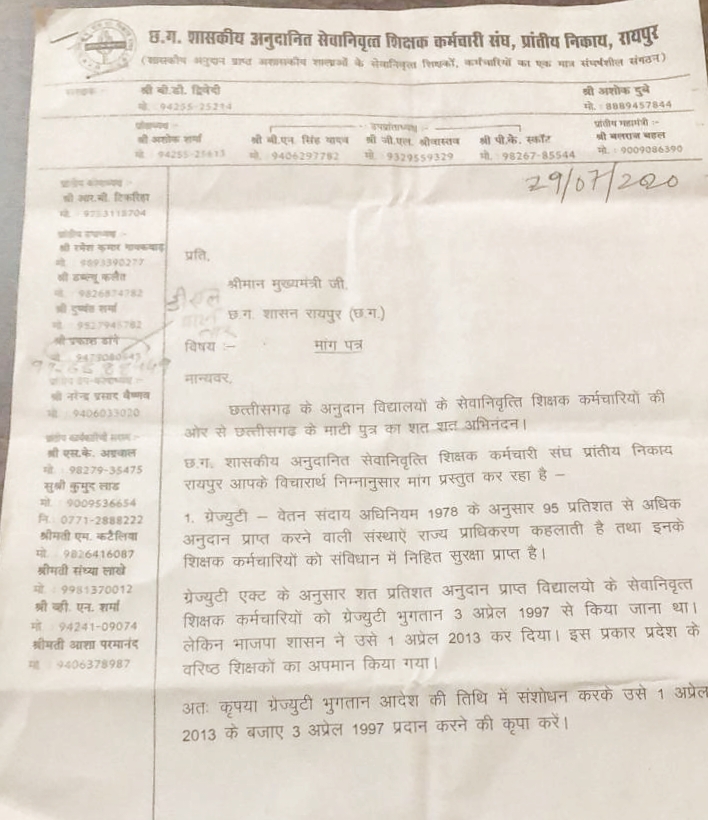 छ.ग. शासकीय अनुदानित सेवानिवृत्त शिक्षक कर्मचारी संघ, प्रांतीय निकाय, रायपुर
(शासकीय अनुदान प्राप्त अशासकीय शालाओं के सेवानिवृत्त शिक्षकों, कर्मचारियों का एक मात्र संघर्षशील संगठन)
श्री बी.डी. द्विवेदी
मो. 94255-25214
श्री अशोक दुबे
मो. : 8889457844
श्री अशोक शर्मा
मो. : 94255-25613
उपप्रांताध्यक्ष :-
श्री बी.एन. सिंह यादव
मो. 9406297782
श्री जी.एल. श्रीवास्तव
मो. 9329559329
श्री पी.के. स्कॉट
मो. : 98267-85544
प्रांतीय महामंत्री :-
श्री बलराज बहल
मो. : 9009086390
29/07/2020
प्रांतीय कोषाध्यक्ष :-
श्री आर.बी. टिकरिहा
मो. : 9753118704
प्रांतीय उपाध्यक्ष :-
श्री रमेश कुमार गायकवाड़
मो. 9893390277
श्री डब्ल्यू कलैत
मो. : 9826874782
श्री दुष्यंत शर्मा
मो. : 9527945782
श्री प्रकाश डांगे
मो.
श्री नरेन्द्र प्रसाद वैष्णव
मो. 9406033020
प्रांतीय कार्यकारिणी सदस्य :-
श्री एस.के. अग्रवाल
मो. : 98279-35475
सुश्री कुमुद लाड
मो. : 9009536654
नि. : 0771-2888222
श्रीमती एम. कटैलिया
मो. : 9826416087
श्रीमती संध्या लाखे
मो. : 9981370012
श्री व्ही. एन. शर्मा
मो. : 94241-09074
श्रीमती आशा परमानंद
मो. : 9406378987
प्रति,
श्रीमान मुख्यमंत्री जी,
छ.ग. शासन रायपुर (छ.ग.)
विषय :- मांग पत्र
मान्यवर,
छत्तीसगढ़ के अनुदान विद्यालयों के सेवानिवृत्ति शिक्षक कर्मचारियों की
ओर से छत्तीसगढ़ के माटी पुत्र का शत शत अभिनंदन।
छ.ग. शासकीय अनुदानित सेवानिवृत्ति शिक्षक कर्मचारी संघ प्रांतीय निकाय
रायपुर आपके विचारार्थ निम्नानुसार मांग प्रस्तुत कर रहा है –
1. ग्रेज्युटी – वेतन संदाय अधिनियम 1978 के अनुसार 95 प्रतिशत से अधिक
अनुदान प्राप्त करने वाली संस्थाऐं राज्य प्राधिकरण कहलाती है तथा इनके
शिक्षक कर्मचारियों को संविधान में निहित सुरक्षा प्राप्त है।
ग्रेज्युटी एक्ट के अनुसार शत प्रतिशत अनुदान प्राप्त विद्यालयो के सेवानिवृत्त
शिक्षक कर्मचारियों को ग्रेज्युटी भुगतान 3 अप्रेल 1997 से किया जाना था।
लेकिन भाजपा शासन ने उसे 1 अप्रेल 2013 कर दिया। इस प्रकार प्रदेश के
वरिष्ठ शिक्षकों का अपमान किया गया।
अतः कृपया ग्रेज्युटी भुगतान आदेश की तिथि में संशोधन करके उसे 1 अप्रेल
2013 के बजाए 3 अप्रेल 1997 प्रदान करने की कृपा करें।